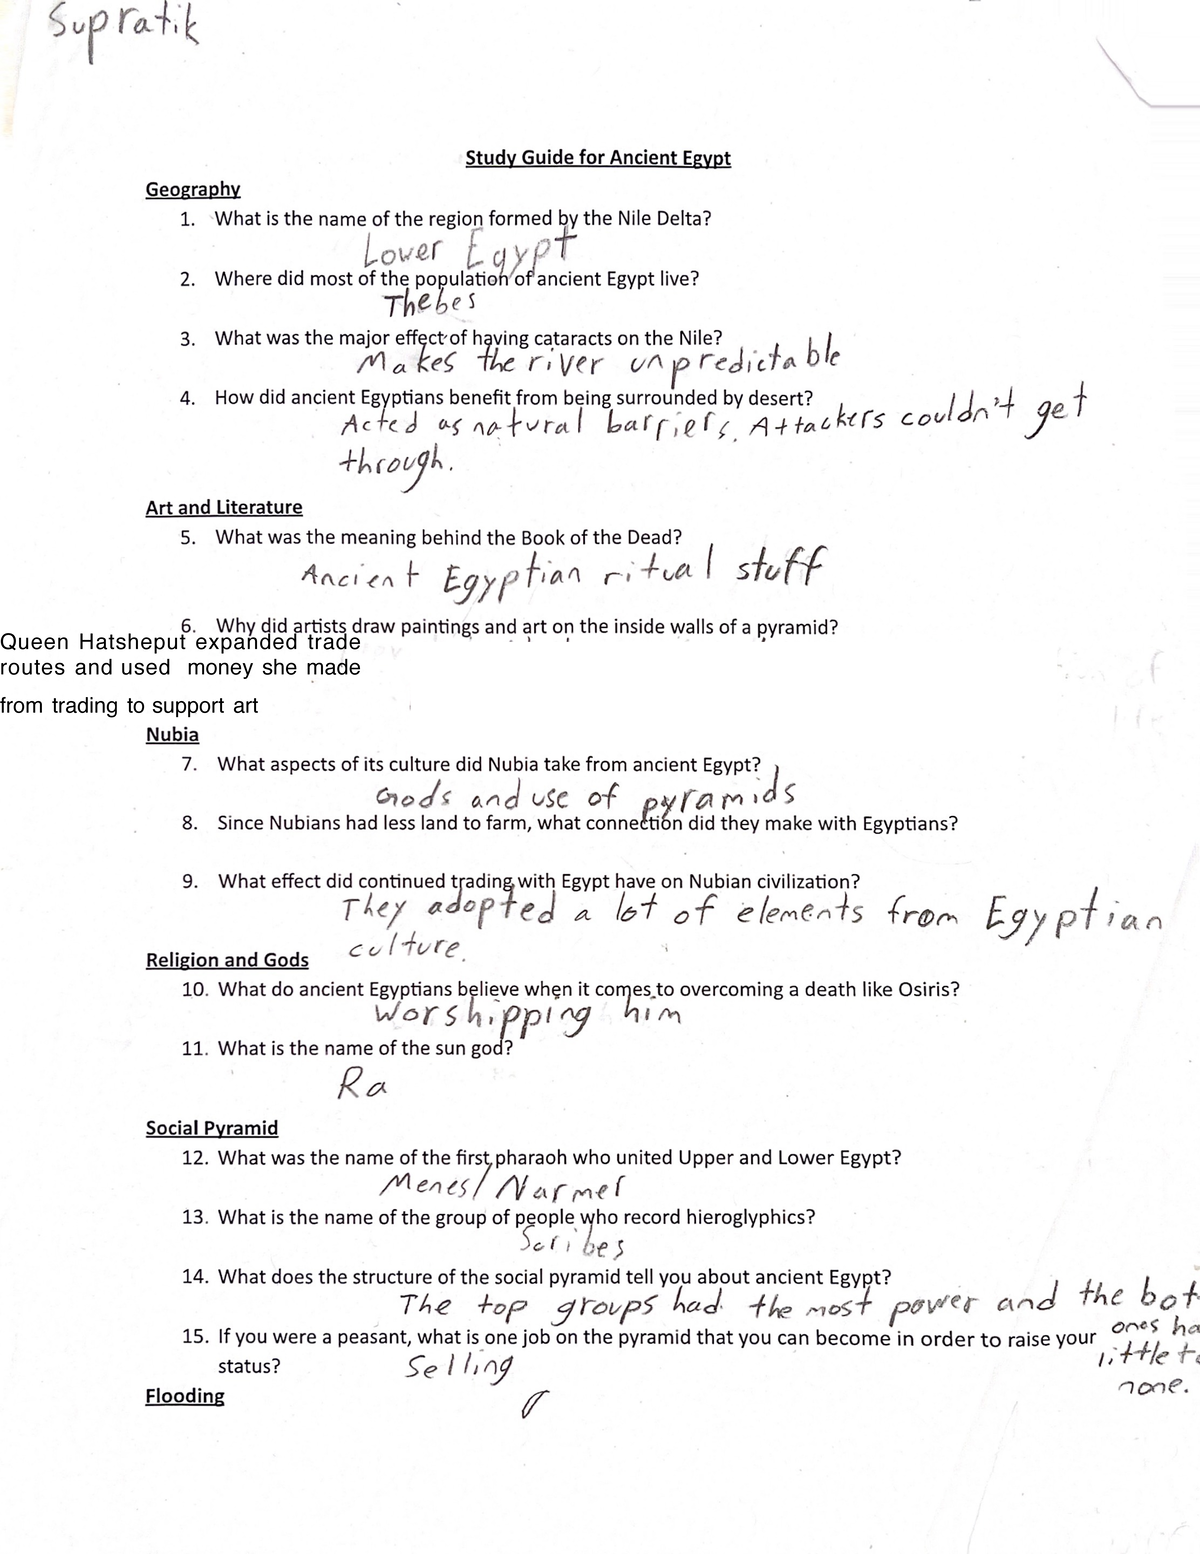 Supratik
Study Guide for Ancient Egypt
Geography
1. What is the name of the region formed by the Nile Delta?
Lower Egypt
2. Where did most of the population of ancient Egypt live?
Thebes
3. What was the major effect of having cataracts on the Nile?
Makes the river unpredictable
4. How did ancient Egyptians benefit from being surrounded by desert?
Acted as natural barriers. Attackers couldn't get
through.
Art and Literature
5. What was the meaning behind the Book of the Dead?
Ancient Egyptian ritual stuff
6. Why did artists draw paintings and art on the inside walls of a pyramid?
Queen Hatsheput expanded trade
routes and used money she made
from trading to support art
Nubia
7. What aspects of its culture did Nubia take from ancient Egypt?
Gods and use of pyramids
8. Since Nubians had less land to farm, what connection did they make with Egyptians?
9. What effect did continued trading with Egypt have on Nubian civilization?
They adopted a lot of elements from Egyptian
culture.
Religion and Gods
10. What do ancient Egyptians believe when it comes to overcoming a death like Osiris?
Worshipping him
11. What is the name of the sun god?
Ra
Social Pyramid
12. What was the name of the first pharaoh who united Upper and Lower Egypt?
Menes/Narmer
13. What is the name of the group of people who record hieroglyphics?
Scribes
14. What does the structure of the social pyramid tell you about ancient Egypt?
The top groups had the most power and the bot
ones ha
little to
none.
15. If you were a peasant, what is one job on the pyramid that you can become in order to raise your
status?
Selling
Flooding